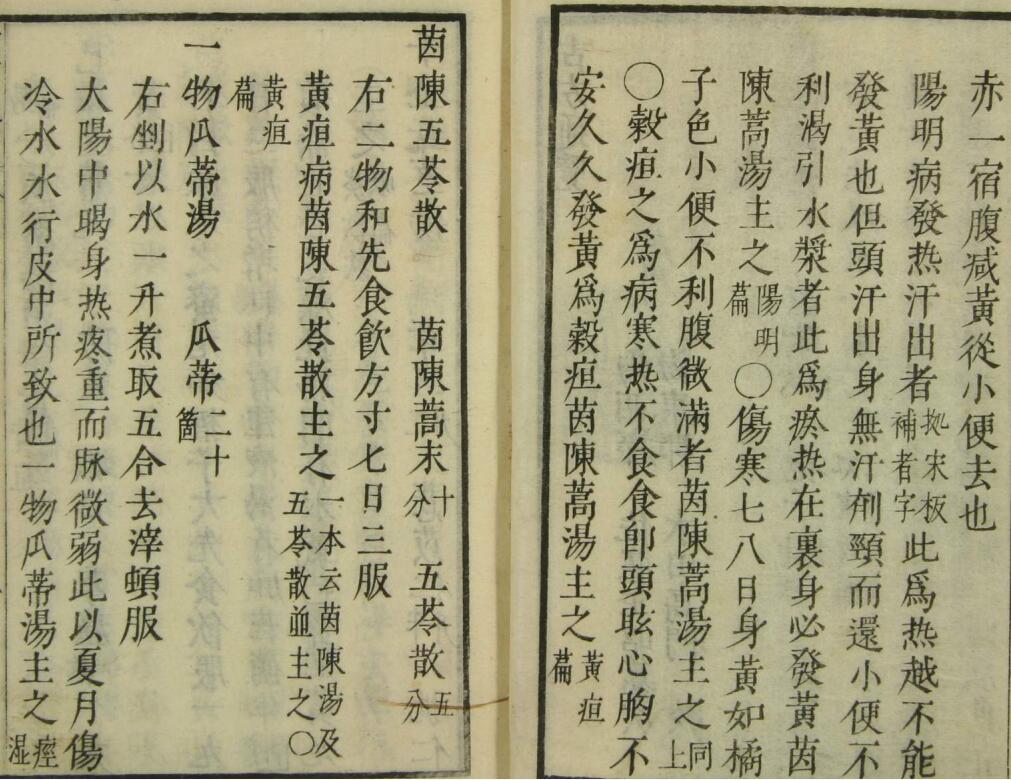 赤一宿腹减黃從小便去也
陽明病發热汗出者拠宋板補者字此爲热越不能
發黃也但頭汗出身無汗劑頸而還小便不
利渴引水漿者此爲瘀热在裏身必發黃茵
陳蒿湯主之陽明篇〇傷寒七八日身黃如橘
子色小便不利腹微滿者茵陳蒿湯主之同上
〇穀疸之爲病寒热不食食卽頭眩心胸不
安久久發黃爲穀疸茵陳蒿湯主之黃疸篇
茵陳五苓散　茵陳蒿末十分　五苓散五分
右二物和先食飮方寸七日三服
黃疸病茵陳五苓散主之一本云茵陳湯及五苓散並主之〇
黃疸篇
一物瓜蒂湯　瓜蒂二十箇
右剉以水一升煮取五合去滓頓服
大陽中暍身热疼重而脉微弱此以夏月傷
冷水水行皮中所致也一物瓜蒂湯主之痙湿